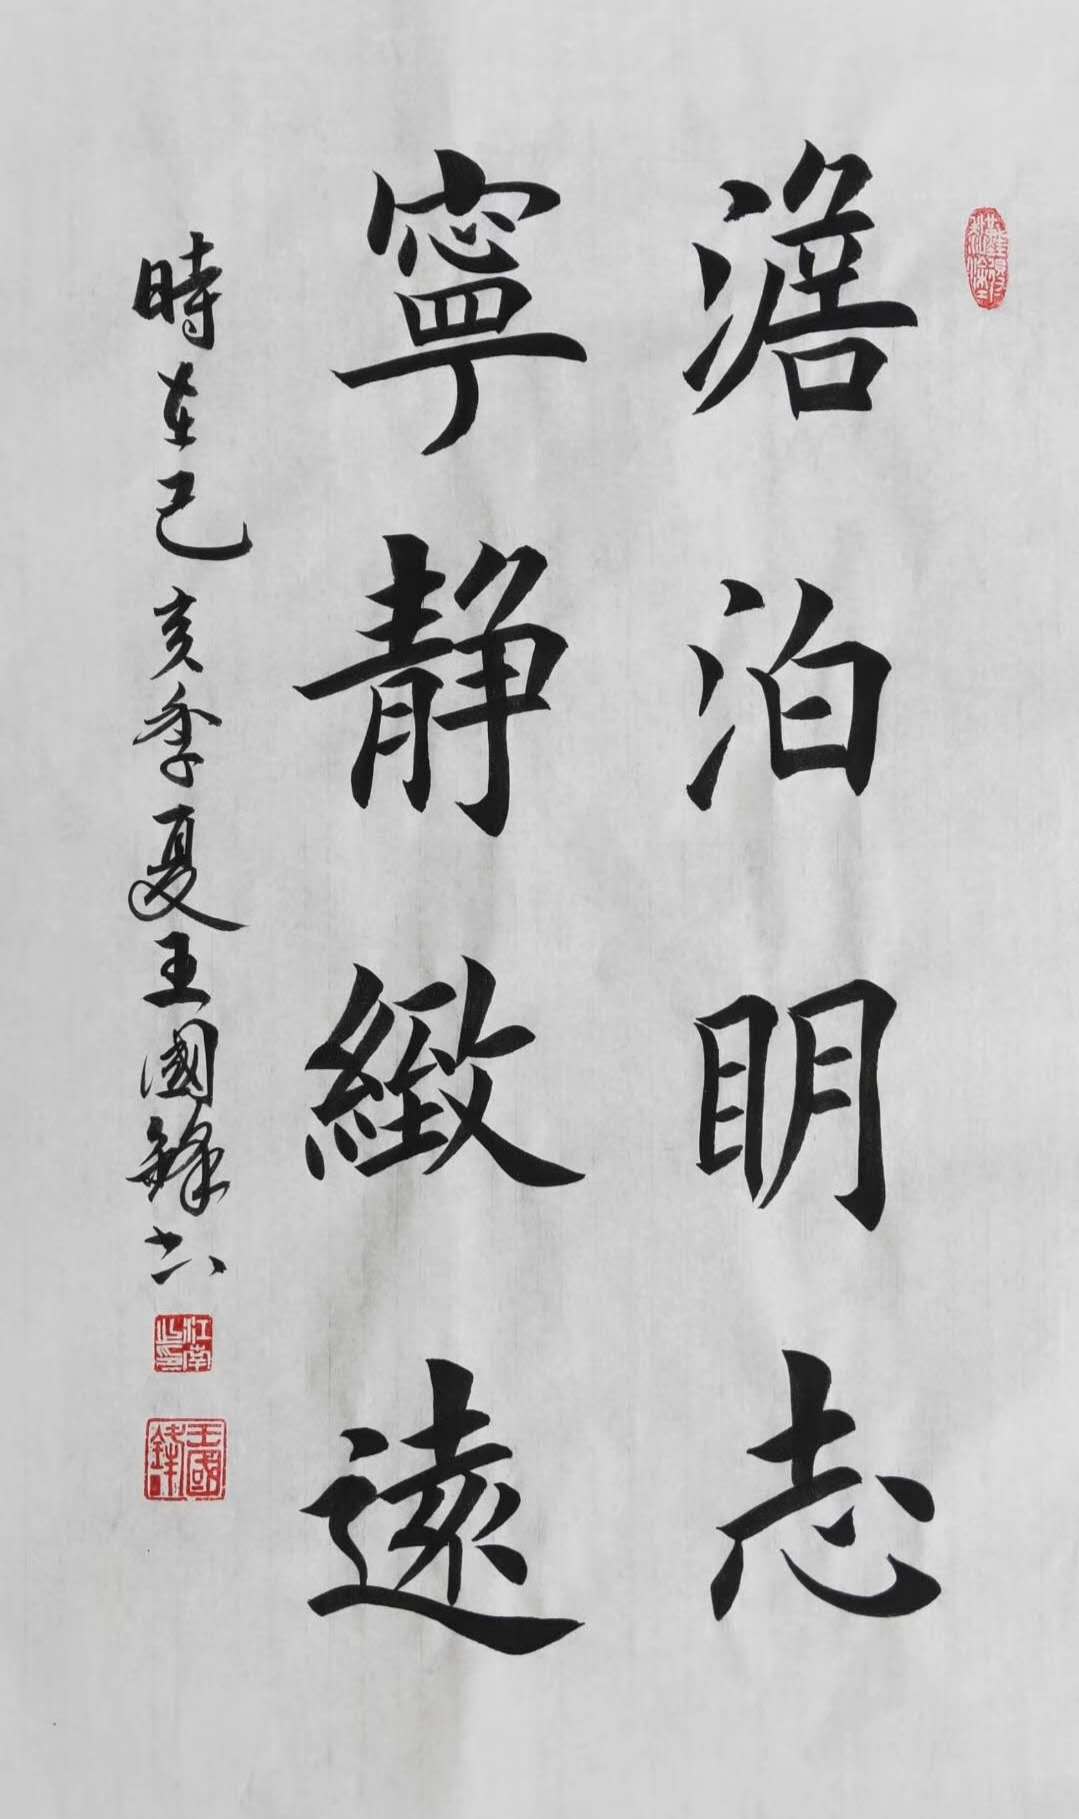 澹泊眀志
寧静緻遠
時在己亥季夏王國鋒书
江南之印
王國鋒